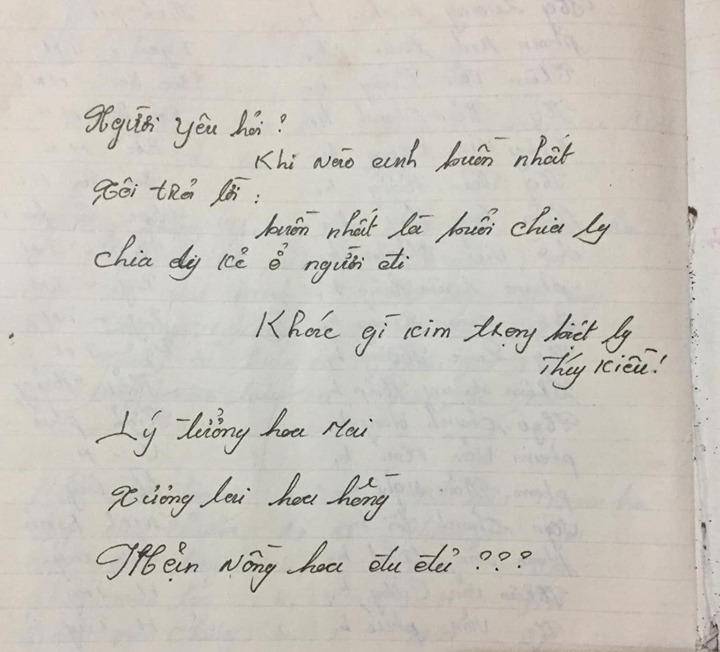 Người yêu hỏi ?
Khi nào anh buồn nhất
Tôi trả lời :
buồn nhất là buổi chia ly
Chia ly kẻ ở người đi
Khác gì Kim trọng biệt ly
Thúy Kiều !
Lý tưởng hoa Mai
Tương lai hoa hồng
Mặn nồng hoa đu đủ ???